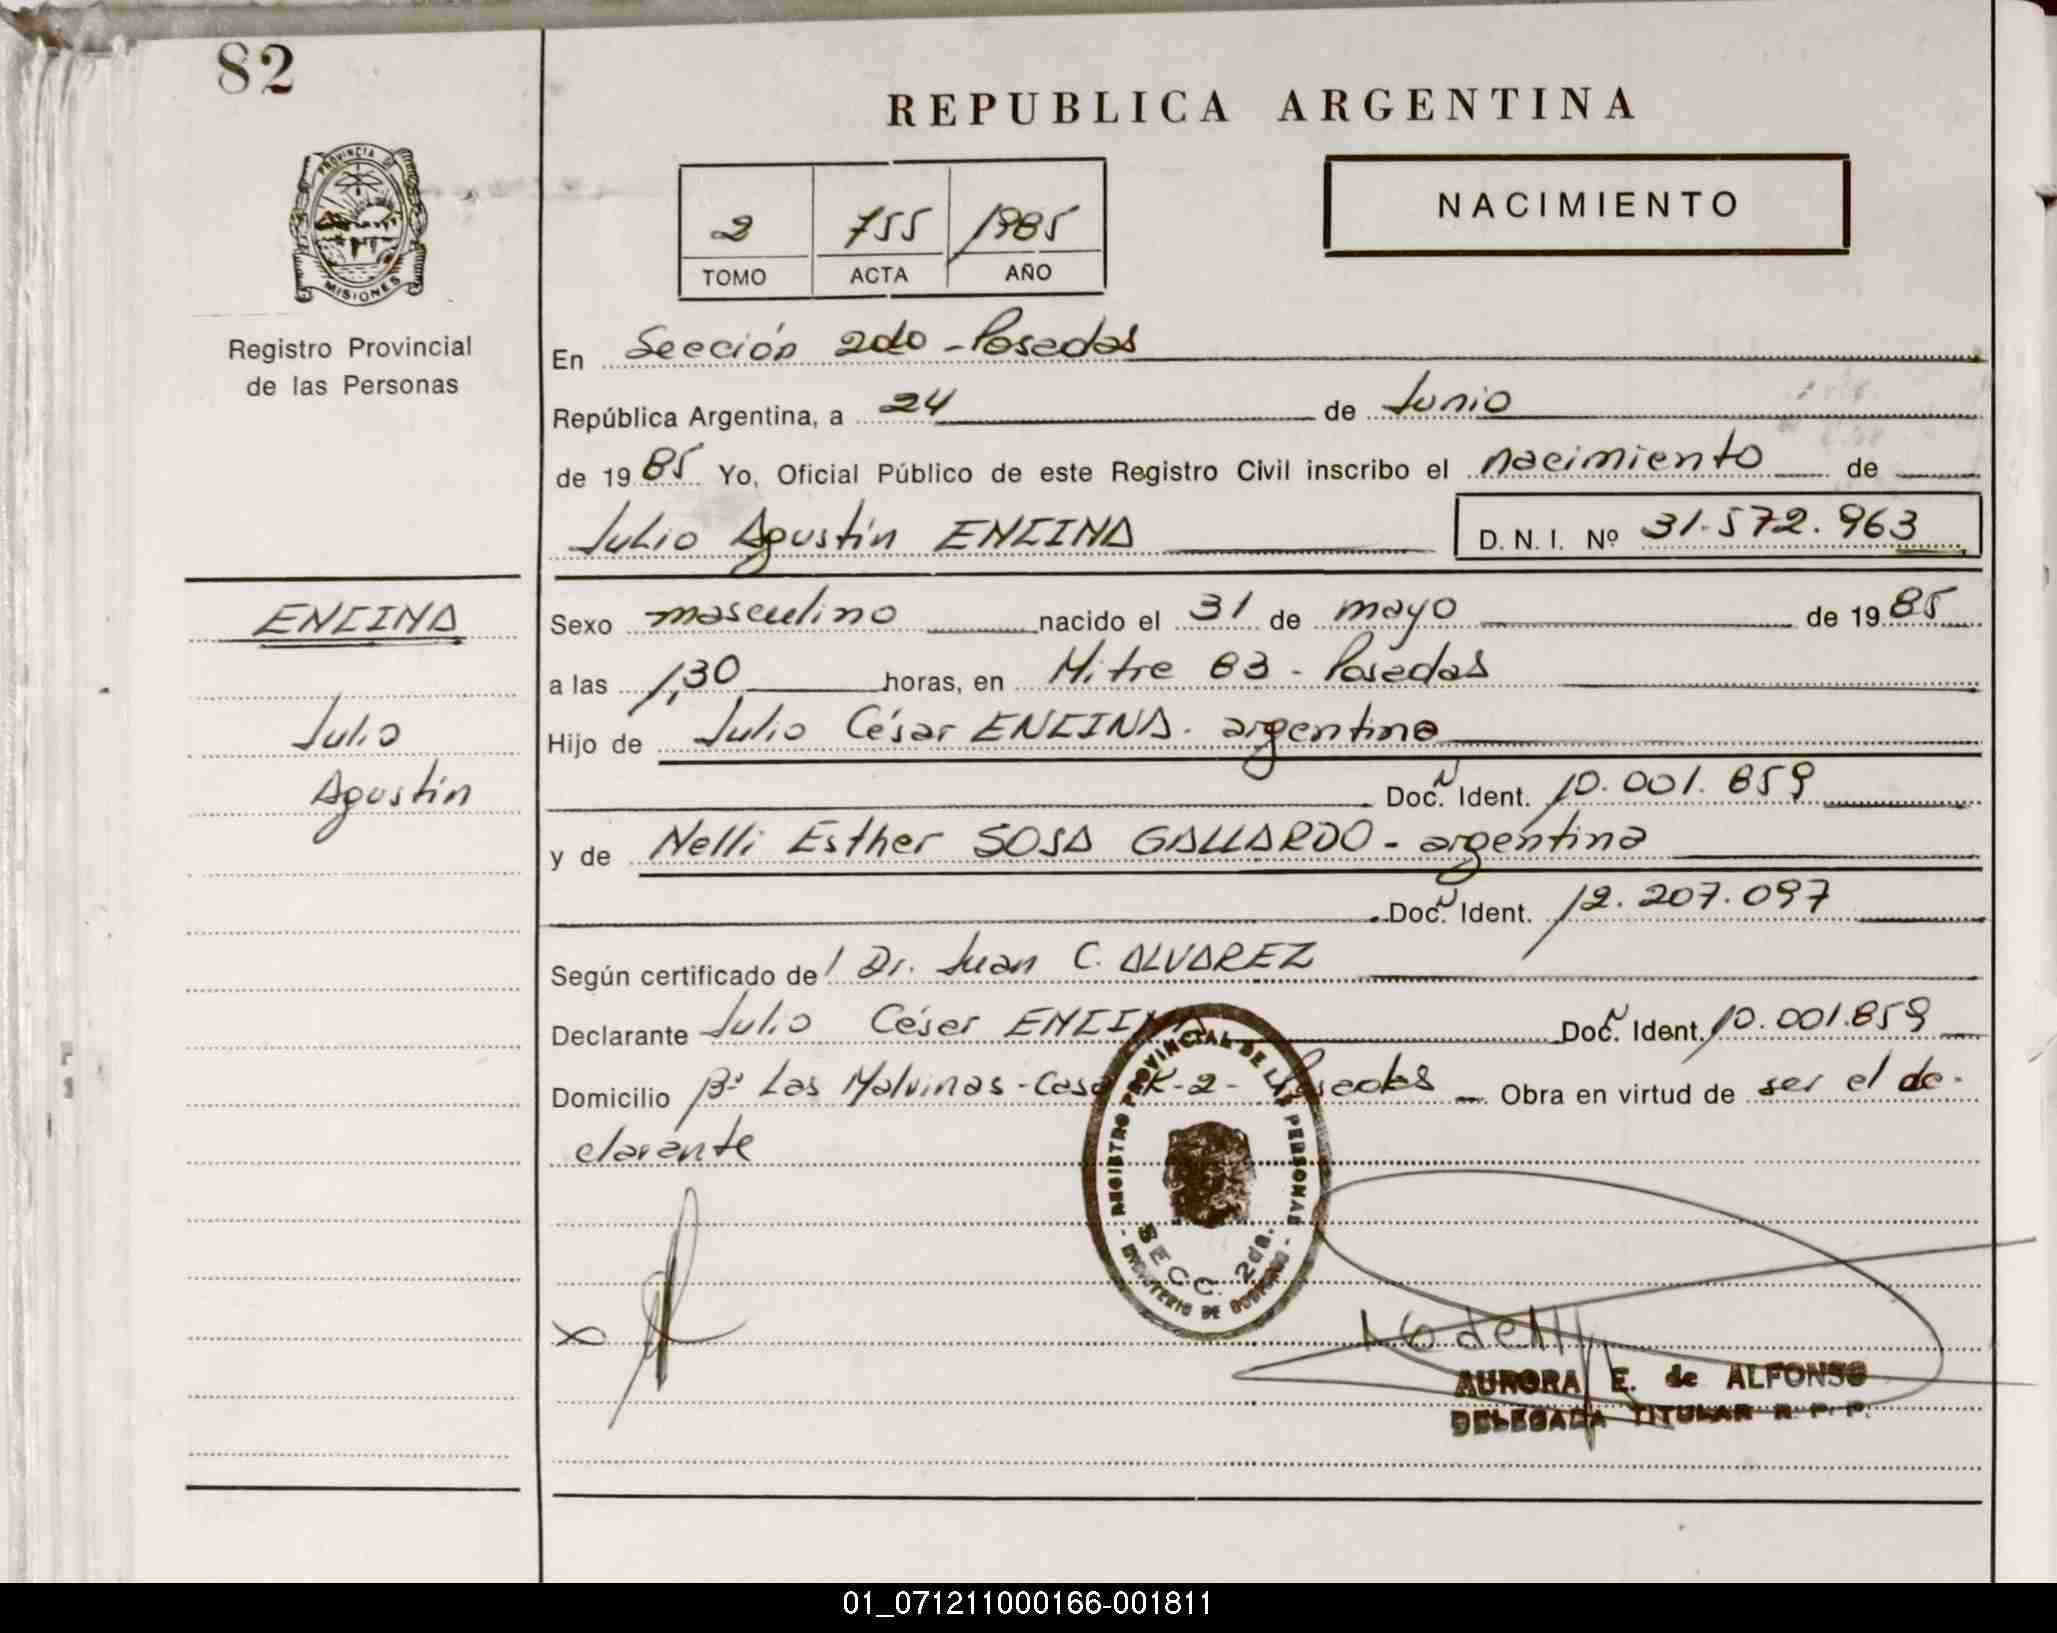 82
REPUBLICA ARGENTINA
NACIMIENTO
2 755 1985
TOMO ACTA AÑO
PROVINCIA DE
MISIONES
Registro Provincial
de las Personas
En Sección 2do - Posadas
República Argentina, a 24 de Junio
de 1985 Yo, Oficial Público de este Registro Civil inscribo el nacimiento de
Julio Agustín ENCINA D. N. I. Nº 31.572.963
ENCINA
Julio
Agustín
Sexo masculino nacido el 31 de mayo de 1985
a las 1,30 horas, en Mitre 83 - Posadas
Hijo de Julio César ENCINA - argentino
Doc. Ident. 10.001.859
y de Nelli Esther SOSA GALLARDO - argentina
Doc. Ident. 12.207.097
Según certificado de Dr. Juan C. ALVAREZ
Declarante Julio César ENCINA Doc. Ident. 10.001.859
Domicilio Bº Las Malvinas - Casa K-2 - Posadas Obra en virtud de ser el de-
clarante
REGISTRO PROVINCIAL DE LAS PERSONAS
SECC. 2da.
- MINISTERIO DE GOBIERNO -
AURORA E. de ALFONSO
DELEGADA TITULAR R. P. P.
01_071211000166-001811